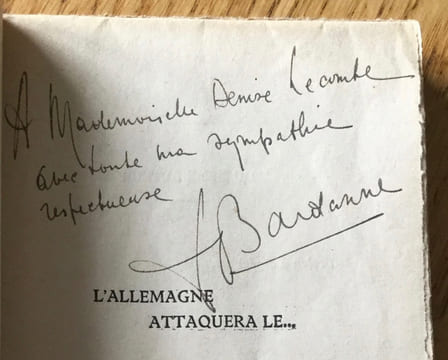 A Mademoiselle Denise Lecomte
avec toute ma sympathie
respectueuse
J Bardanne
L'ALLEMAGNE
ATTAQUERA LE...